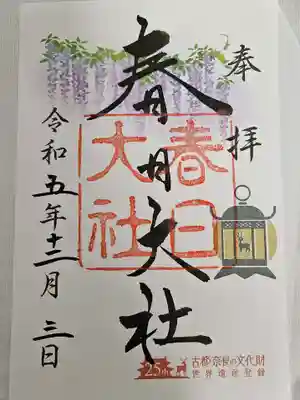 奉拝
春日大社
春日
大社
令和五年十二月三日
25th
古都奈良の文化財
世界遺産登録